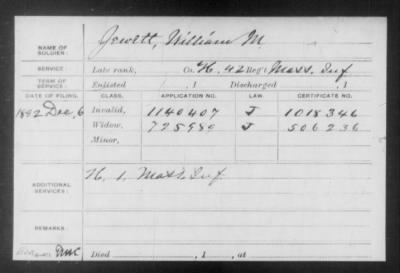 NAME OF SOLDIER: Jewett, William M.
SERVICE: Late rank, Co. H, 42 Reg't Mass. Inf
TERM OF SERVICE: Enlisted , 1 Discharged , 1
DATE OF FILING. CLASS. APPLICATION NO. LAW. CERTIFICATE NO.
1892 Dec, 6 Invalid, 1140407 J 1018346
Widow, 725980 J 506236
Minor,
ADDITIONAL SERVICES: H. 1. Mass. Inf
REMARKS:
Died , 1 , at